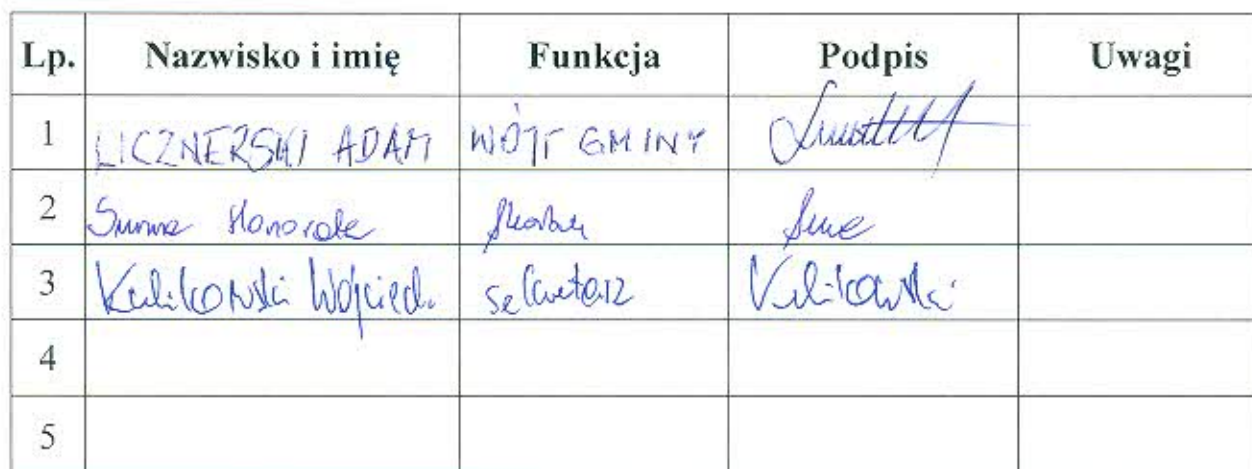 Lp. Nazwisko i imię Funkcja Podpis Uwagi
1 LICZNERSKI ADAM WÓJT GMINY
2 Honorata Skarbnik
3 Kulikowski Wojciech sekretarz Kulikowski
4
5